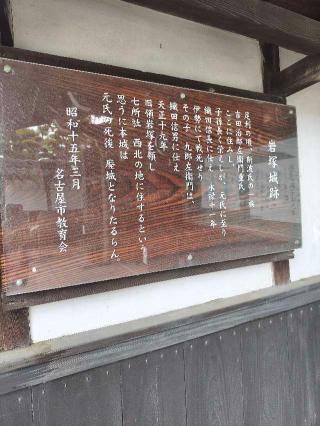 岩塚城跡
足利の増、斯波氏の一族
吉田治郎左衛門重氏
ここに住みし、
子孫長く栄えしが、元氏に至り
織田信長に仕え、永禄十一年
伊勢にて戦死せり
その子、九郎左衛門は、
織田信男に仕え
天正十九年
旧領岩塚を願し
七所社 西北の地に住するという
思うに本城は
元氏の死後 廃城となりたるらん。
昭和十五年三月
名古屋市教育会